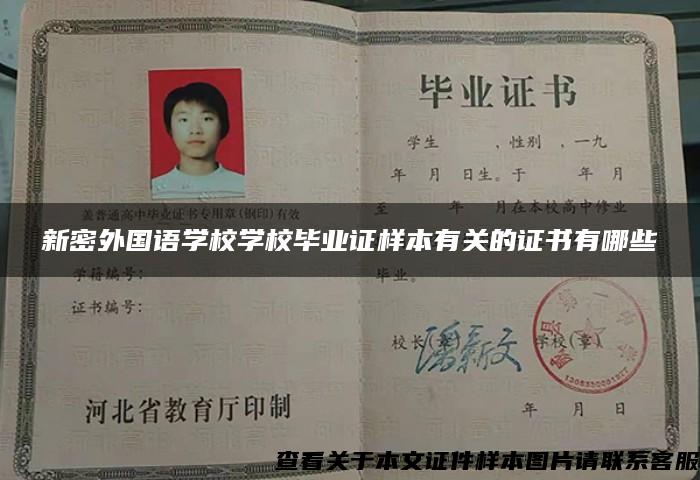 毕业证书
学生 ,性别 ,一九
年 月 日生。于 年 月
至 年 月在本校高中修业
毕业。
校长(章) 学校(章)
年 月 日
盖普通高中毕业证书专用章(钢印)有效
学籍编号:
证书编号:
河北省教育厅印制
新密外国语学校学校毕业证样本有关的证书有哪些
查看关于本文证件样本图片请联系客服